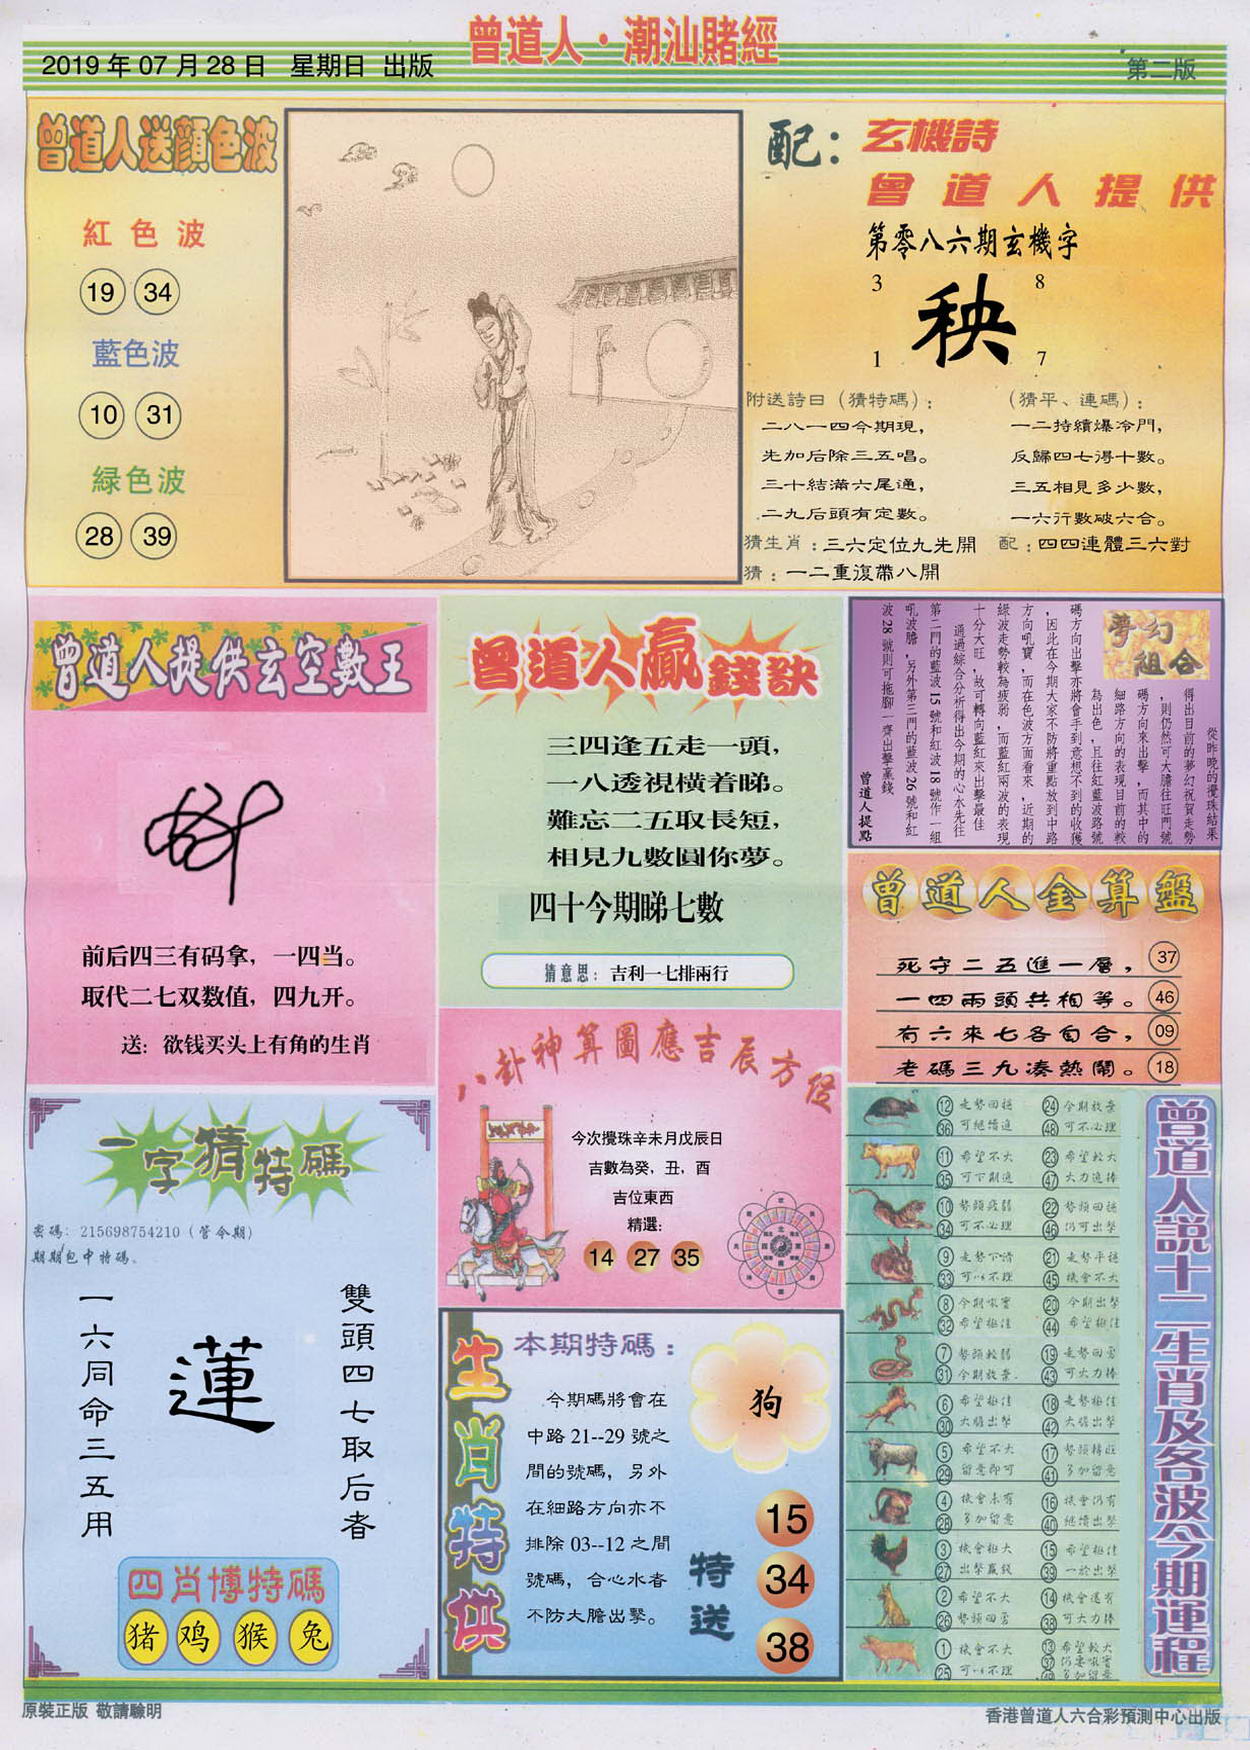 曾道人·潮汕賭經
2019年07月28日 星期日 出版
第二版
曾道人送顔色波
紅色波
19 34
藍色波
10 31
緑色波
28 39
配:
玄機詩
曾道人提供
第零八六期玄機字
3 8
秧
1 7
附送詩曰（猜特碼）:
二八一四今期現，
先加后除三五唱。
三十結滿六尾通，
二九后頭有定數。
(猜平、連碼）:
一二持續爆冷門，
反歸四七得十數。
三五相見多少數，
一六行數破六合。
猜生肖:三六定位九先開
配:四四連體三六對
猜:一二重復帶八開
曾道人提供玄空數王
前后四三有码拿，一四当。
取代二七双数值，四九开。
送：欲钱买头上有角的生肖
曾道人贏錢訣
三四逢五走一頭，
一八透視横着睇。
難忘二五取長短，
相見九數圓你夢。
四十今期睇七數
猜意思：吉利一七排兩行
夢幻組合
從昨晚的攪珠結果
得出目前的夢幻祝賀走勢
，則仍然可大膽往旺門號
碼方向來出擊，而其中的
細路方向的表現目前的較
為出色，且往紅藍波路號
碼方向出擊亦將會手到意想不到的收獲
，因此在今期大家不防將重點放到中路
方向吼寶，而在色波方面看來，近期的
綠波走勢較為疲弱，而藍紅兩波的表現
十分大旺，故可轉向藍紅來出擊最佳
通過綜合分析得出今期的心水先往
第二門的藍波15號和紅波18號作一組
吼波膽，另外第三門的藍波26號和紅
波28號則可拖腳一齊出擊贏錢
曾道人提點
曾道人金算盤
死守二五進一層，37
一四兩頭共相等。46
有六來七各自合，09
老碼三九凑熱鬧。18
八卦神算圖應吉辰方位
今次攪珠辛未月戊辰日
吉數為癸，丑，酉
吉位東西
精選:
14 27 35
一字猜特碼
密碼: 215698754210（管令期）
期期包中特碼。
一六同命三五用
蓮
雙頭四七取后者
四肖博特碼
猪 鸡 猴 兔
生肖特供
本期特碼:
今期碼將會在
中路21--29號之
間的號碼，另外
在細路方向亦不
排除03--12之間
號碼，合心水者
不防大膽出擊。
狗
特送
15
34
38
曾道人說十二生肖及各波今期運程
12 走勢回穩 24 今期放棄
36 可繼續追 48 可不必理
11 希望不大 23 希望較大
35 可下期追 47 大力追捧
10 勢頭疲弱 22 勢頭回穩
34 可不必理 46 仍可出擊
9 走勢下滑 21 走勢平穩
33 可以不理 45 機會不大
8 今期吼寶 20 今期出擊
32 希望極佳 44 希望極佳
7 勢頭較弱 19 走勢回勇
31 今期放棄 43 可大力捧
6 希望極佳 18 走勢極佳
30 大膽出擊 42 大膽出擊
5 希望不大 17 勢頭轉旺
29 留意即可 41 多加留意
4 機會未有 16 機會仍有
28 多加留意 40 繼續出擊
3 機會極大 15 希望極佳
27 出擊贏錢 39 一於出擊
2 希望不大 14 機會還有
26 勢頭回勇 38 可大力捧
1 機會不大 13 希望較大
25 可以不理 37 仍要吼實
49 多加留意
原裝正版 敬請驗明
香港曾道人六合彩預測中心出版